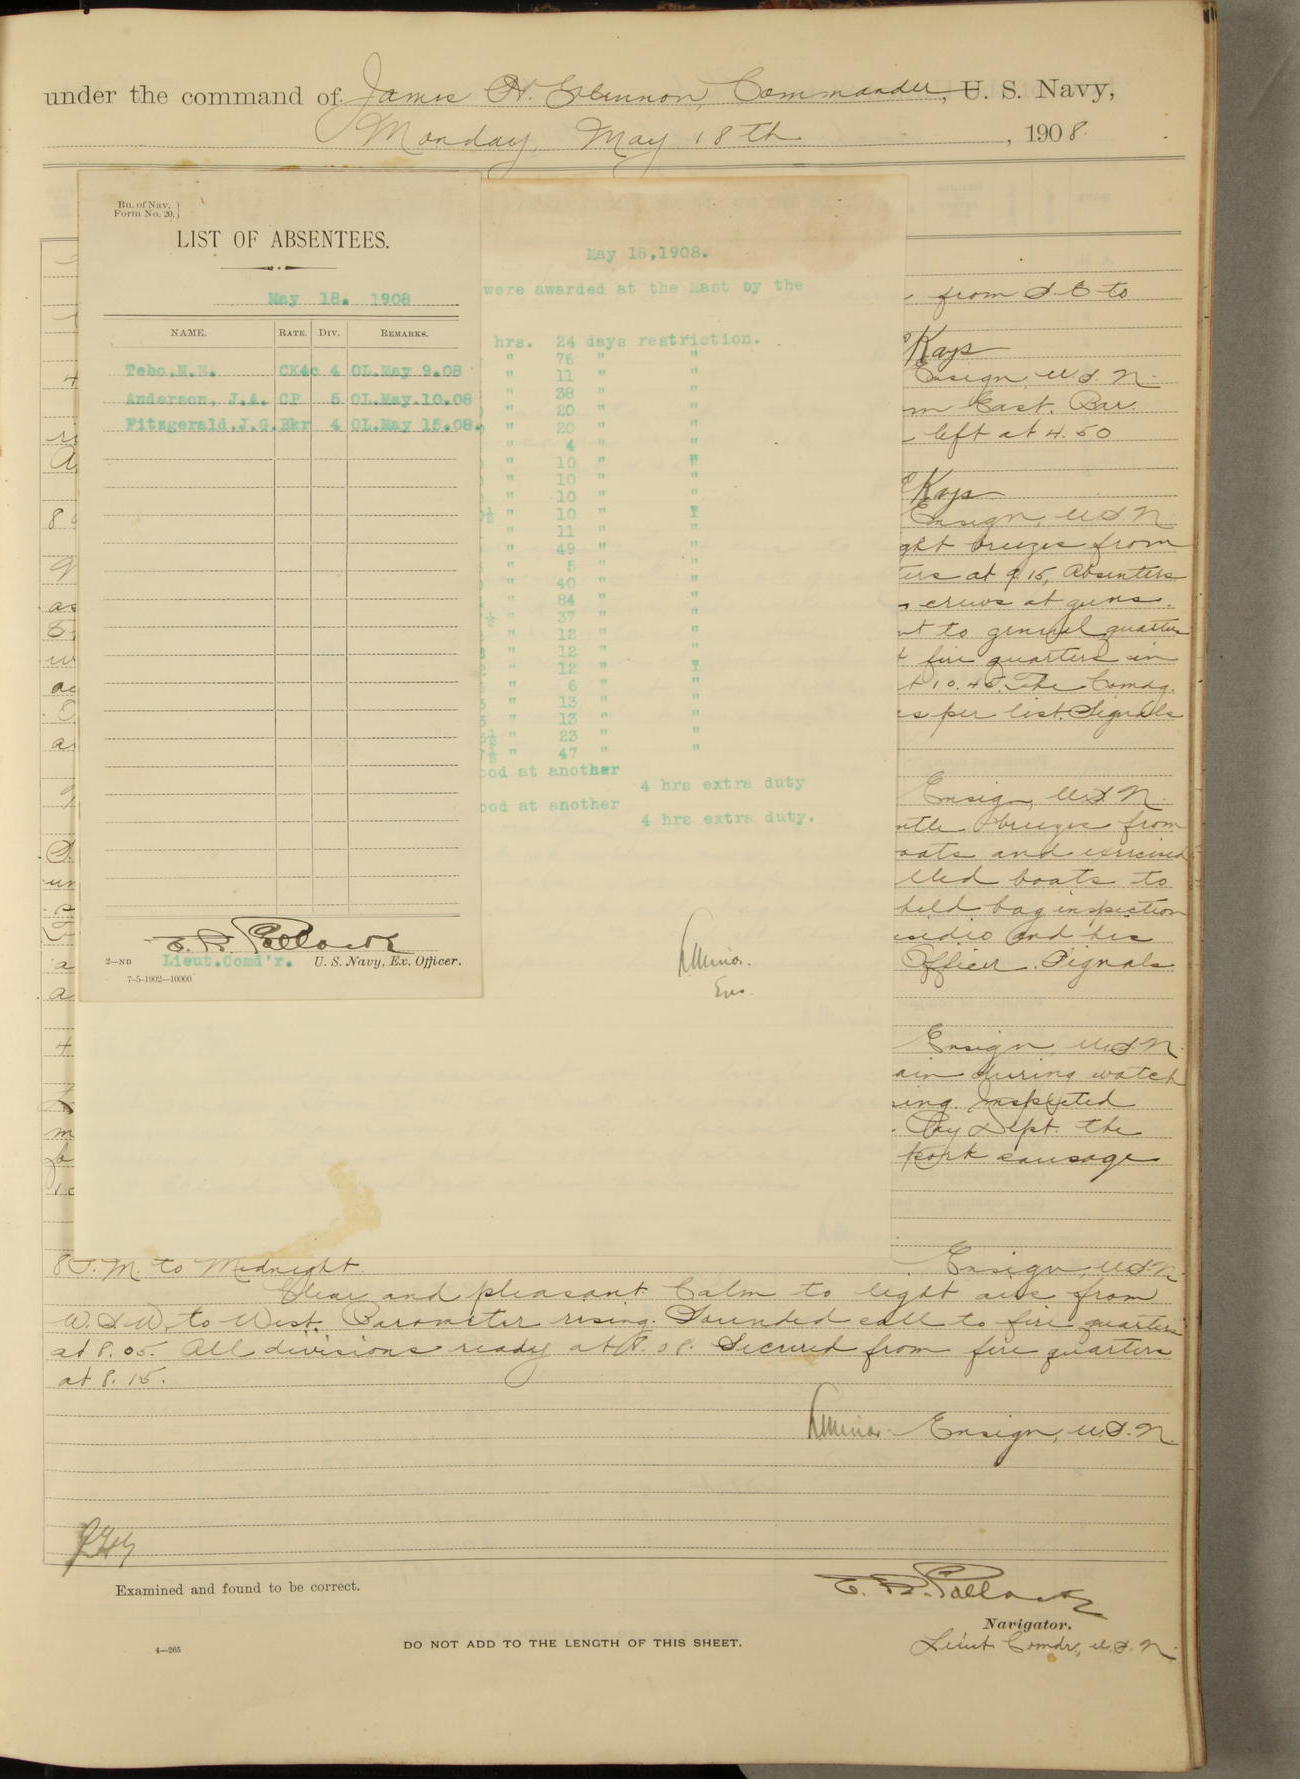 under the command of James H. Glennon, Commander, U. S. Navy,
Monday, May 18th, 1908.
Bu. of Nav.
Form No. 20.
LIST OF ABSENTEES.
May 18. 1908
NAME. RATE. DIV. REMARKS.
Tebo.N.N. CK4c 4 OL.May 9.08
Anderson, J.A. CP 5 OL.May.10.08
Fitzgerald.J.G. Bkr 4 OL.May 15.08.
E. R. Pollock
Lieut.Comd'r. U. S. Navy, Ex. Officer.
2—ND
7-5-1902—10000
May 18,1908.
were awarded at the Mast by the
hrs. 24 days restriction.
" 76 " "
" 11 " "
" 38 " "
" 20 " "
" 20 " "
" 4 " "
" 10 " "
" 10 " "
" 10 " "
½ " 10 " "
" 11 " "
" 49 " "
" 5 " "
" 40 " "
" 84 " "
½ " 37 " "
" 12 " "
" 12 " "
" 12 " "
" 6 " "
" 13 " "
" 13 " "
½ " 23 " "
½ " 47 " "
ood at another
4 hrs extra duty
ood at another
4 hrs extra duty.
Ens.
from S E to
Kays
Ensign, U.S.N.
m East. Bar
left at 4.50
Kays
Ensign, U.S.N.
ght breezes from
ters at 9.15, Absentees
crews at guns.
nt to general quarters
t fire quarters in
t 10.45. The Comdg.
es per list. Signals
Ensign, U.S.N.
ntle breezes from
oats and exercised
lled boats to
held bag inspection
esidio and his
Officer. Signals
Ensign, U.S.N.
ain during watch
sing. Inspected
Pay Dept. the
Pork sausage
8 P.M. to Midnight. Ensign, U.S.N.
Clear and pleasant. Calm to light airs from
W.S.W. to West. Barometer rising. Sounded call to fire quarters
at 8.05. All divisions ready at 8.08. Secured from fire quarters
at 8.15.
Ensign, U.S.N.
Examined and found to be correct.
E. R. Pollock
Navigator.
Lieut Comdr, U.S.N.
4—265
DO NOT ADD TO THE LENGTH OF THIS SHEET.